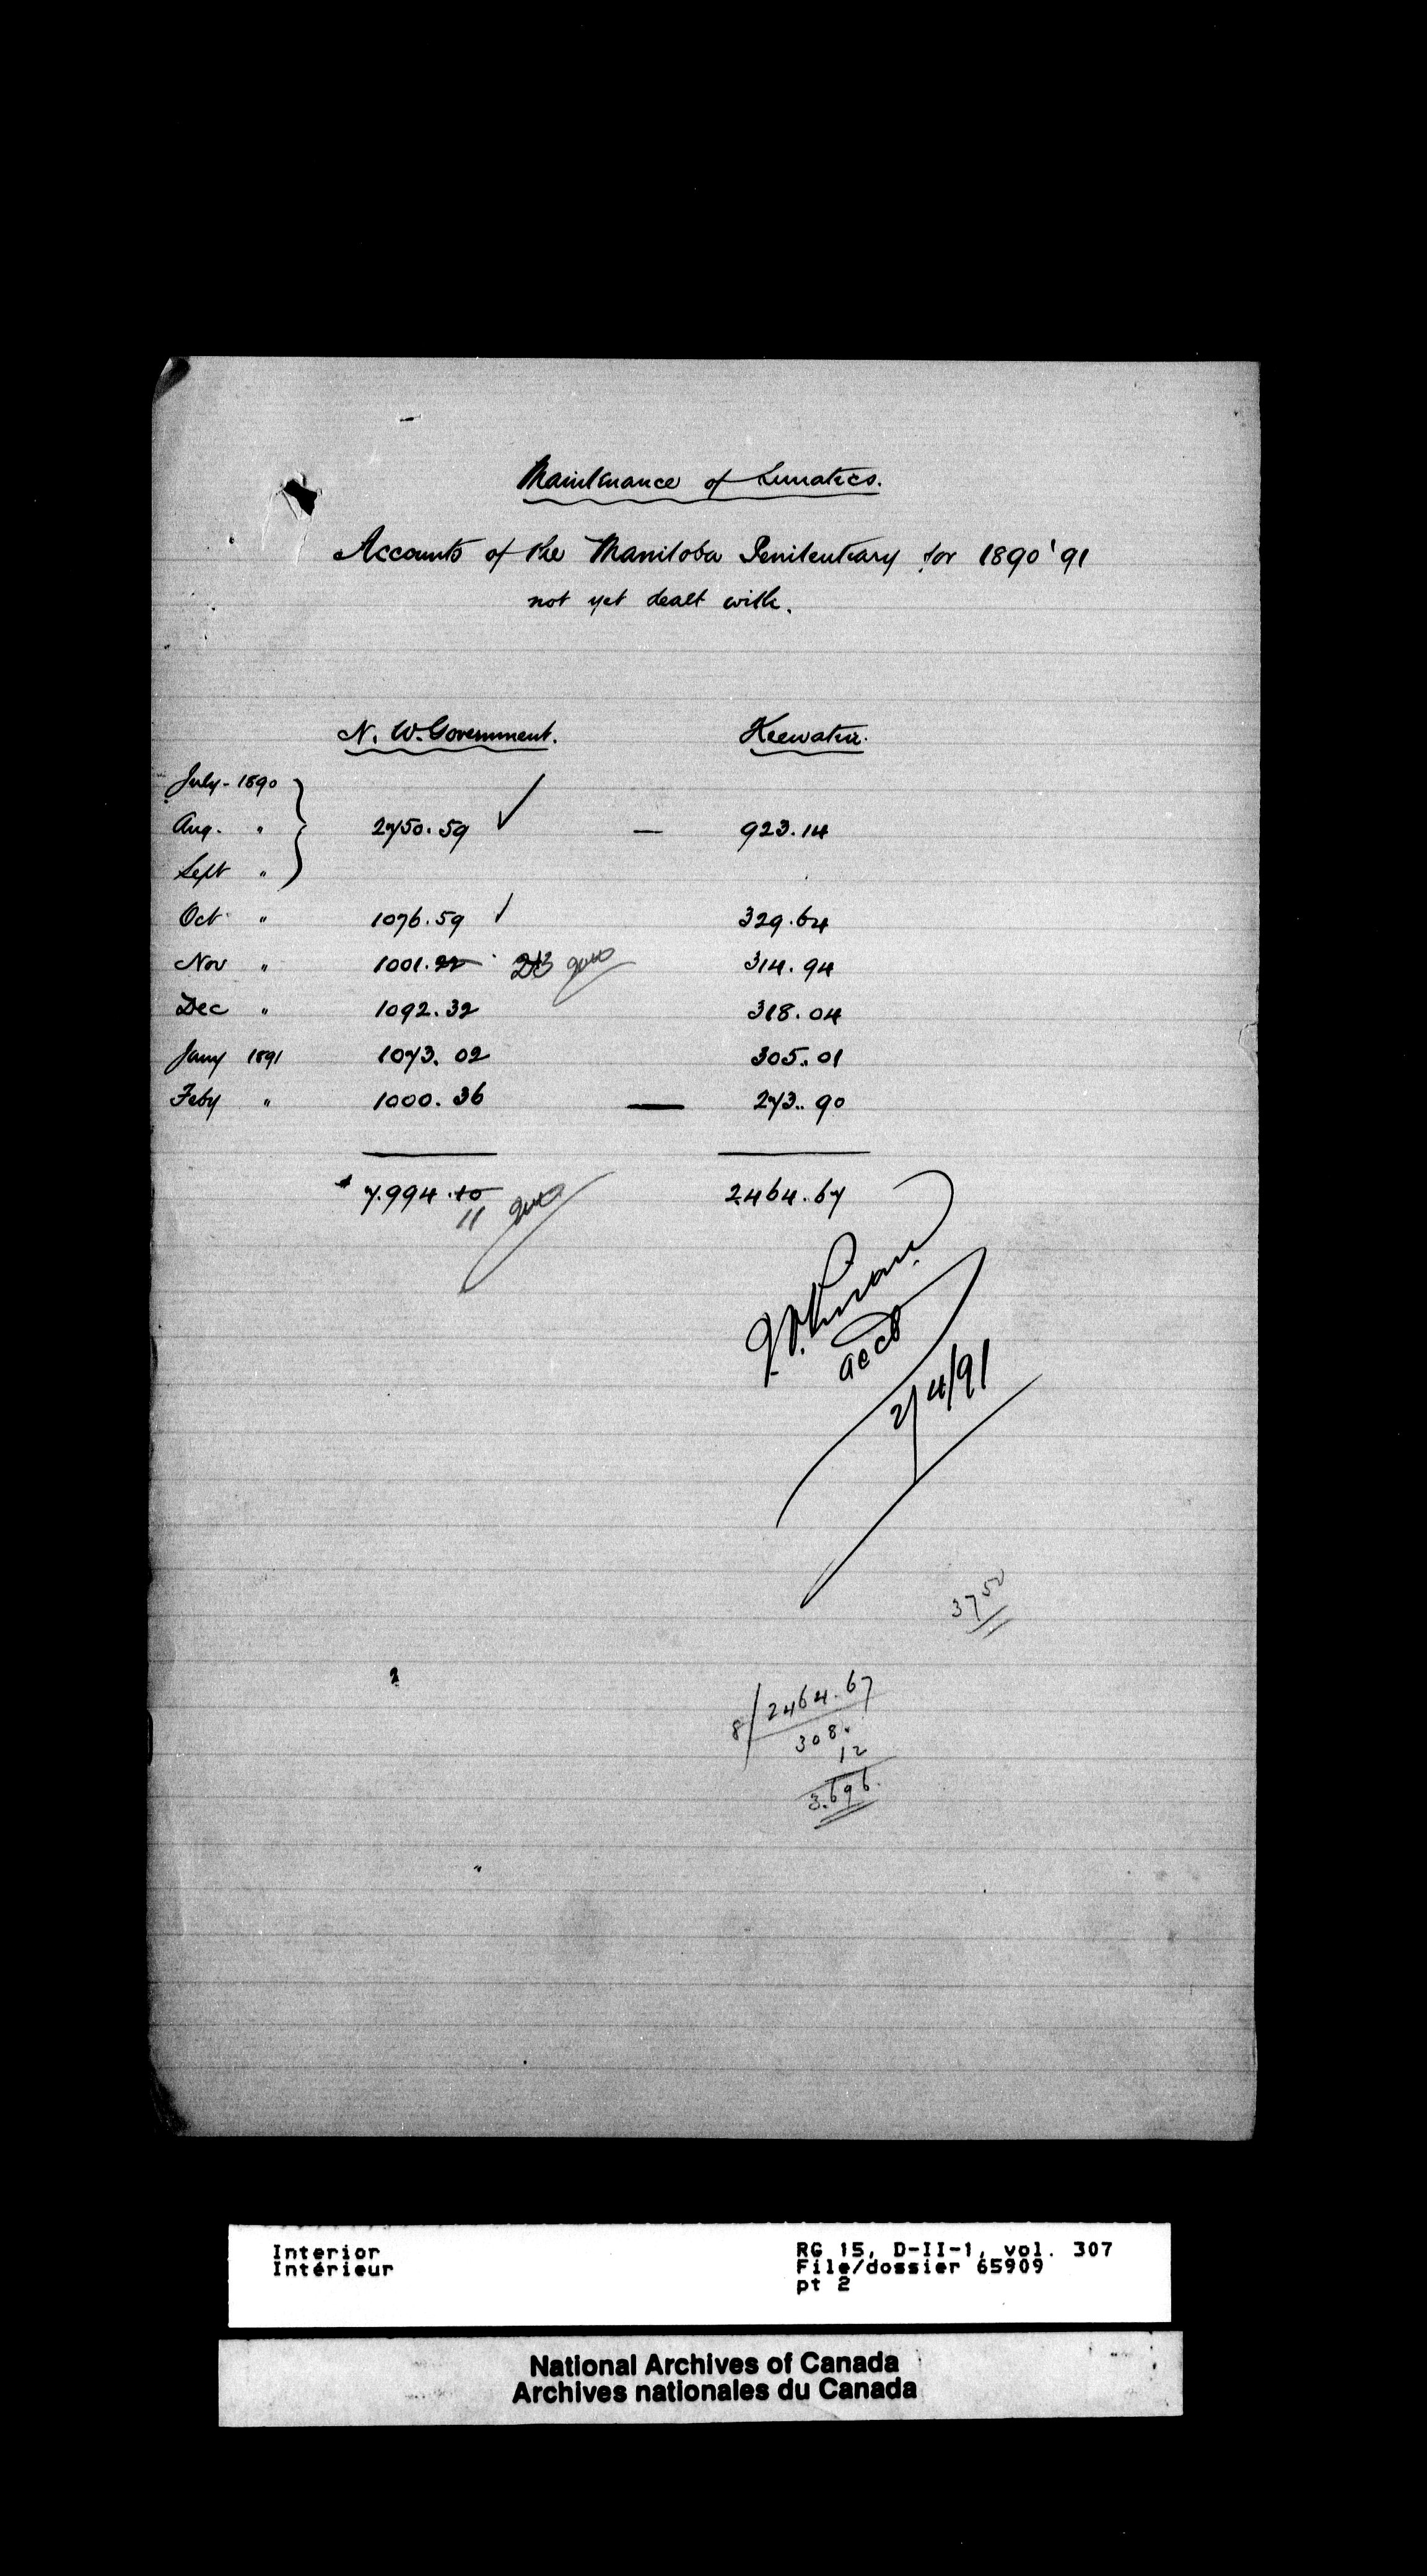 Maintenance of Lunatics.
Accounts of the Manitoba Penitentiary for 1890'91
not yet dealt with.
N. W. Government. Keewatin.
July - 1890
Aug. " 2750.59 ✓ — 923.14
Sept "
Oct " 1076.59 ✓ 329.64
Nov " 1001.22 23 314.94
Dec " 1092.32 318.04
Jany 1891 1073.02 305.01
Feby " 1000.36 — 273.90
$ 7.994.10 2464.67
11
acct
2/4/91
37 50
8/2464.67
308.
12
3.696.
Interior
Intérieur
RG 15, D-II-1, vol. 307
File/dossier 65909
pt 2
National Archives of Canada
Archives nationales du Canada